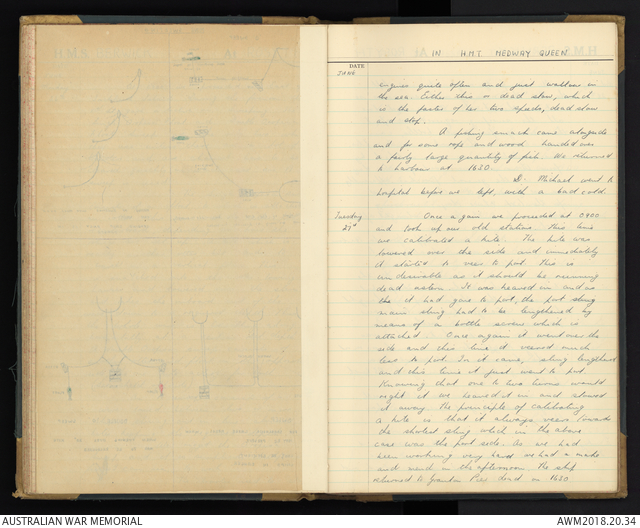 IN H.M.T. MEDWAY QUEEN
DATE
JAN 6
engines quite often and just wallows in
the sea. Either this or dead slow, which
is the faster of her two speeds, dead slow
and stop.
A fishing smack came alongside
and for some rope and wood handed over
a fairly large quantity of fish. We returned
to harbour at 1630.
D. Michael went to
hospital before we left, with a bad cold.
Tuesday
27th
Once again we proceeded at 0900
and took up our old station. This time
we calibrated a kite. The kite was
lowered over the side and immediately
it started to veer to port. This is
undesirable as it should be running
dead astern. It was heaved in and as
the it had gone to port, the port sling
main sling had to be lengthened by
means of a bottle screw which is
attached. Once again it went over the
side and this time it veered much
less to port. In it came, sling lengthened
and this time it just went to port.
Knowing that one to two turns would
right it we heaved it in and stowed
it away. The principle of calibrating
a kite is that it always veers towards
the shortest sling which in the above
case was the port side. As we had
been working very hard we had a make
and mend in the afternoon. The ship
returned to Granton Pier at 1630
AUSTRALIAN WAR MEMORIAL
AWM2018.20.34